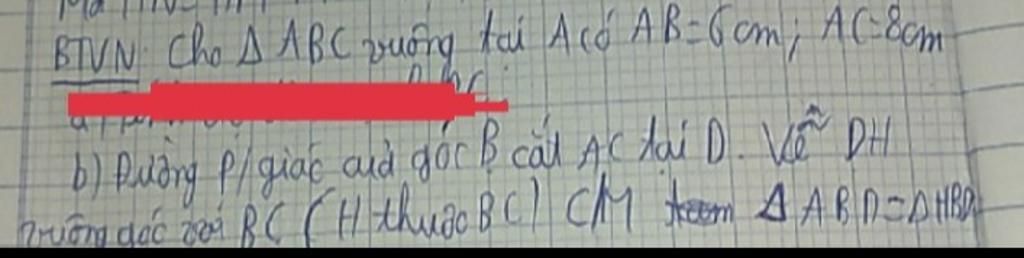 BTVN: Cho Δ ABC vuông tại A có AB=6cm; AC=8cm
b) Đường p/giác của góc B cắt AC tại D. Vẽ DH
vuông góc với BC (H thuộc BC) CM Δ ABD=ΔHBD